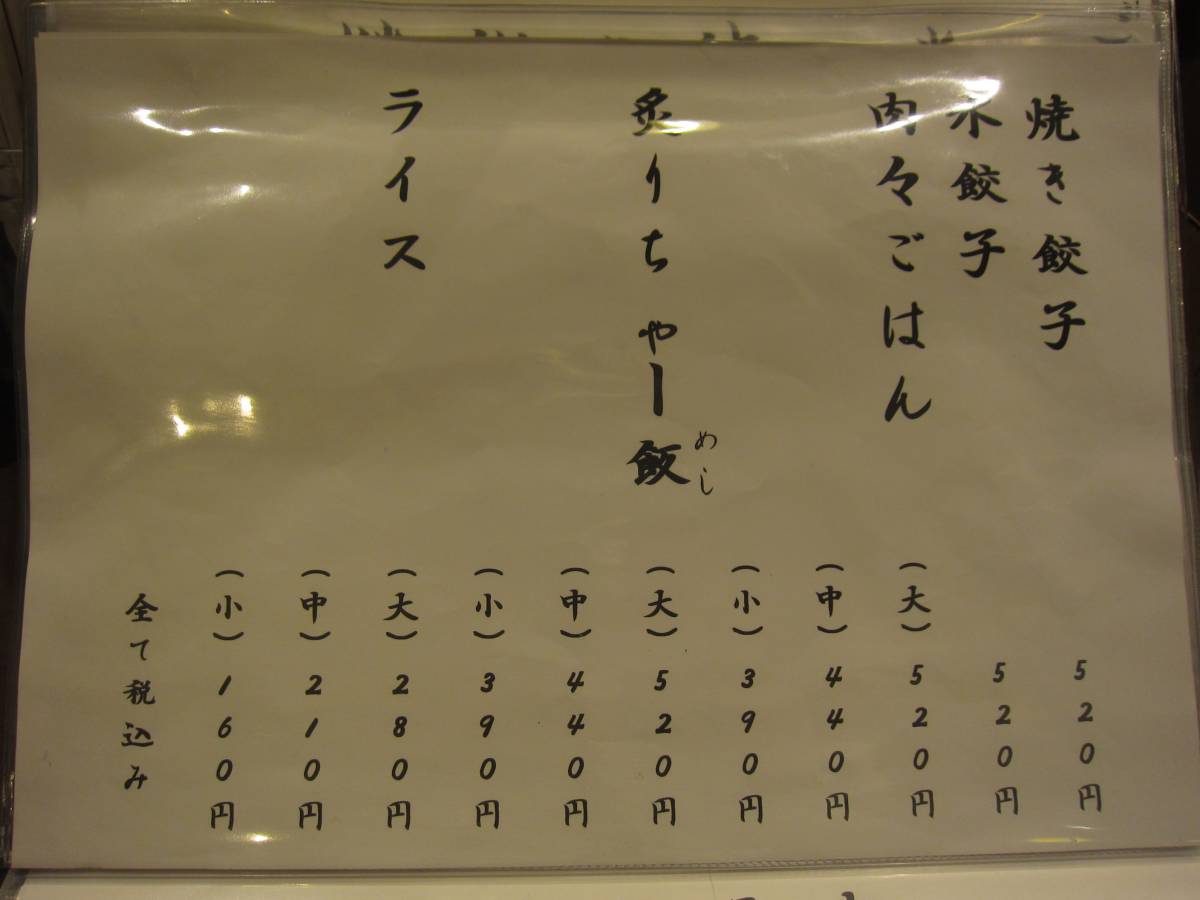 焼き餃子 520円
水餃子 520円
肉々ごはん (大) 520円
(中) 440円
(小) 390円
炙りちゃー飯 (大) 520円
めし
(中) 440円
(小) 390円
ライス (大) 280円
(中) 210円
(小) 160円
全て税込み